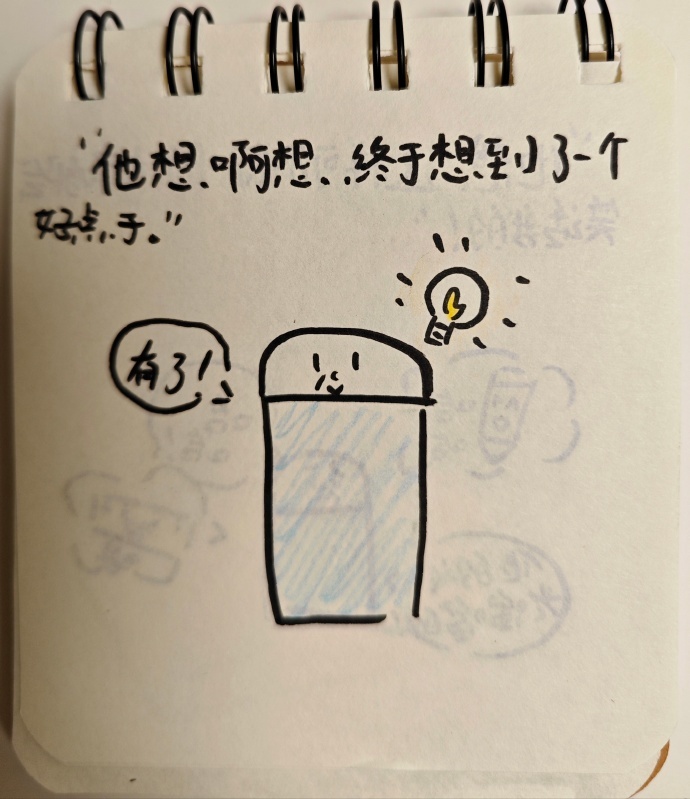 “他想啊想..终于想到了一个
好点子。”
有了!